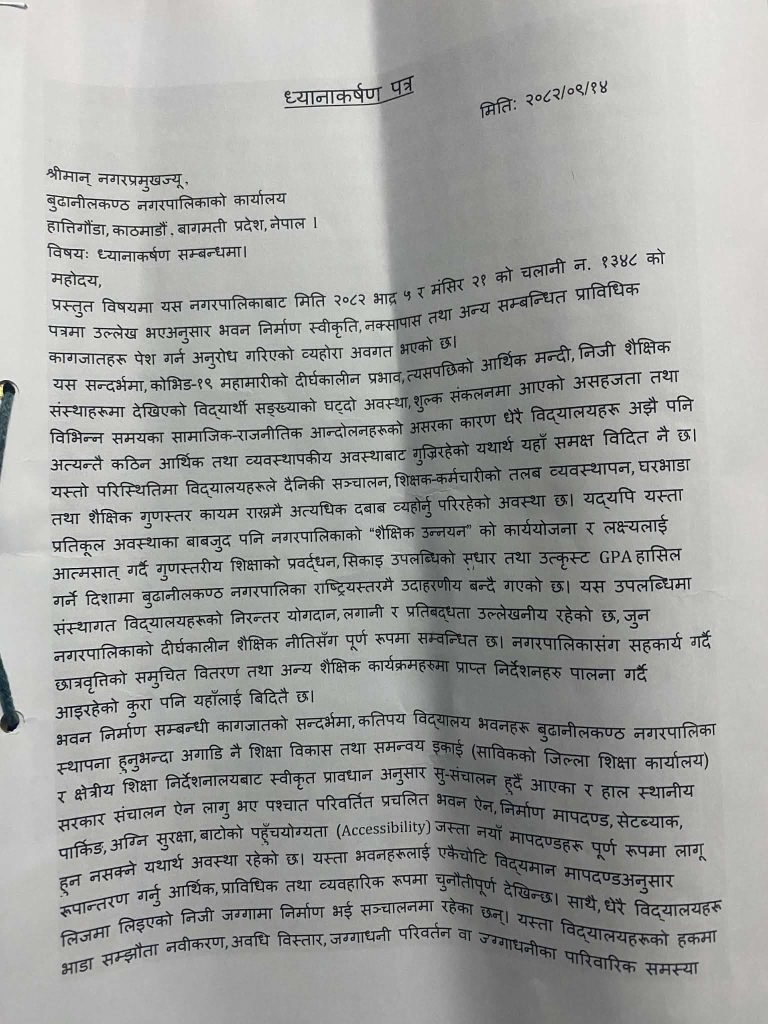 ध्यानाकर्षण पत्र
मितिः २०८२/०९/१४
श्रीमान् नगरप्रमुखज्यू,
बुढानीलकण्ठ नगरपालिकाको कार्यालय
हात्तिगौंडा, काठमाडौं, बागमती प्रदेश, नेपाल ।
विषयः ध्यानाकर्षण सम्बन्धमा।
महोदय,
प्रस्तुत विषयमा यस नगरपालिकाबाट मिति २०८२ भाद्र ५ र मंसिर २१ को चलानी न. १३४८ को
पत्रमा उल्लेख भएअनुसार भवन निर्माण स्वीकृति, नक्सापास तथा अन्य सम्बन्धित प्राविधिक
कागजातहरू पेश गर्न अनुरोध गरिएको व्यहोरा अवगत भएको छ।
यस सन्दर्भमा, कोभिड-१९ महामारीको दीर्घकालीन प्रभाव, त्यसपछिको आर्थिक मन्दी, निजी शैक्षिक
संस्थाहरूमा देखिएको विद्यार्थी सङ्ख्याको घट्दो अवस्था, शुल्क संकलनमा आएको असहजता तथा
विभिन्न समयका सामाजिक-राजनीतिक आन्दोलनहरूको असरका कारण धेरै विद्यालयहरू अझै पनि
अत्यन्तै कठिन आर्थिक तथा व्यवस्थापकीय अवस्थाबाट गुज्रिरहेको यथार्थ यहाँ समक्ष विदित नै छ।
यस्तो परिस्थितिमा विद्यालयहरूले दैनिकी सञ्चालन, शिक्षक-कर्मचारीको तलब व्यवस्थापन, घरभाडा
तथा शैक्षिक गुणस्तर कायम राख्नमै अत्यधिक दबाब व्यहोर्नु परिरहेको अवस्था छ। यद्यपि यस्ता
प्रतिकूल अवस्थाका बाबजुद पनि नगरपालिकाको “शैक्षिक उन्नयन” को कार्ययोजना र लक्ष्यलाई
आत्मसात् गर्दै गुणस्तरीय शिक्षाको प्रवर्द्धन, सिकाइ उपलब्धिको सुधार तथा उत्कृस्ट GPA हासिल
गर्ने दिशामा बुढानीलकण्ठ नगरपालिका राष्ट्रियस्तरमै उदाहरणीय बन्दै गएको छ। यस उपलब्धिमा
संस्थागत विद्यालयहरूको निरन्तर योगदान, लगानी र प्रतिबद्धता उल्लेखनीय रहेको छ, जुन
नगरपालिकाको दीर्घकालीन शैक्षिक नीतिसँग पूर्ण रूपमा सम्वन्धित छ। नगरपालिकासंग सहकार्य गर्दै
छात्रवृत्तिको समुचित वितरण तथा अन्य शैक्षिक कार्यक्रमहरुमा प्राप्त निर्देशनहरु पालना गर्दै
आइरहेको कुरा पनि यहाँलाई बिदितै छ।
भवन निर्माण सम्बन्धी कागजातको सन्दर्भमा, कतिपय विद्यालय भवनहरू बुढानीलकण्ठ नगरपालिका
स्थापना हुनुभन्दा अगाडि नै शिक्षा विकास तथा समन्वय इकाई (साविकको जिल्ला शिक्षा कार्यालय)
र क्षेत्रीय शिक्षा निर्देशनालयबाट स्वीकृत प्रावधान अनुसार सु-संचालन हुदैं आएका र हाल स्थानीय
सरकार संचालन ऐन लागु भए पश्चात परिवर्तित प्रचलित भवन ऐन, निर्माण मापदण्ड, सेटब्याक,
पार्किङ, अग्नि सुरक्षा, बाटोको पहुँचयोग्यता (Accessibility) जस्ता नयाँ मापदण्डहरू पूर्ण रूपमा लागू
हुन नसक्ने यथार्थ अवस्था रहेको छ। यस्ता भवनहरूलाई एकैचोटि विद्यमान मापदण्डअनुसार
रूपान्तरण गर्नु आर्थिक, प्राविधिक तथा व्यवहारिक रूपमा चुनौतीपूर्ण देखिन्छ। साथै, धेरै विद्यालयहरू
लिजमा लिइएको निजी जग्गामा निर्माण भई सञ्चालनमा रहेका छन्। यस्ता विद्यालयहरूको हकमा
भाडा सम्झौता नवीकरण, अवधि विस्तार, जग्गाधनी परिवर्तन वा जग्गाधनीका पारिवारिक समस्या